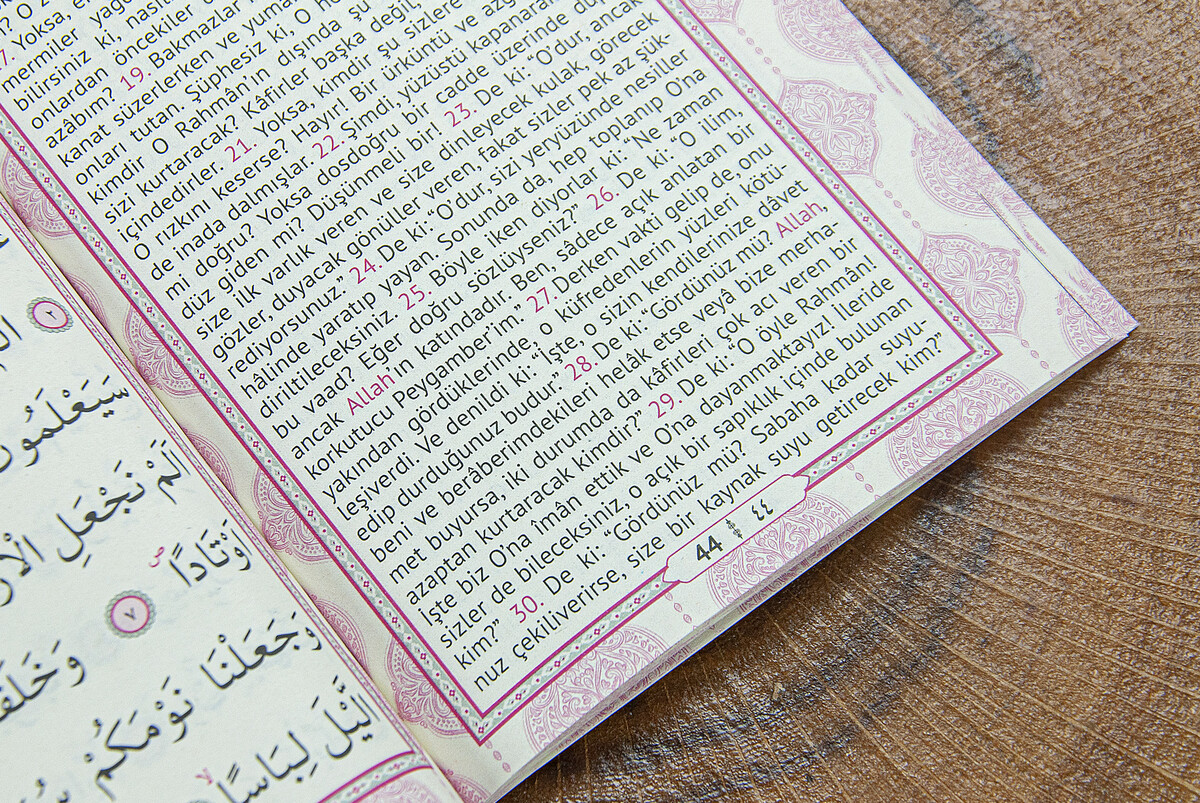 Yoksa,
mermiler
bilirsiniz ki, nasıl
onlardan öncekiler
azâbım? 19. Bakmazlar
kanat süzerlerken ve
onları tutan. Şüphesiz ki, O
kimdir O Rahmân'ın dışında şu
sizi kurtaracak? Kâfirler başka değil,
içindedirler. 21. Yoksa, kimdir şu sizlere
O rızkını keserse? Hayır! Bir ürküntü ve
de inada dalmışlar. 22. Şimdi, yüzüstü kapanarak
mi doğru? Yoksa dosdoğru bir cadde üzerinde
düz giden mi? Düşünmeli bir! 23. De ki: “O'dur, ancak
size ilk varlık veren ve size dinleyecek kulak, görecek
gözler, duyacak gönüller veren, fakat sizler pek az şük-
rediyorsunuz.” 24. De ki: “O'dur, sizi yeryüzünde nesiller
hâlinde yaratıp yayan. Sonunda da, hep toplanıp O'na
diriltileceksiniz. 25. Böyle iken diyorlar ki: “Ne zaman
bu vaad? Eğer doğru sözlüyseniz?” 26. De ki: “O ilim,
ancak Allah'ın katındadır. Ben, sâdece açık anlatan bir
korkutucu Peygamber'im.” 27. Derken vakti gelip de, onu
yakından gördüklerinde, o küfredenlerin yüzleri kötü-
leşiverdi. Ve denildi ki: “İşte, o sizin kendilerinize dâvet
edip durduğunuz budur.” 28. De ki: “Gördünüz mü? Allah,
beni ve berâberimdekileri helâk etse veyâ bize merha-
met buyursa, iki durumda da kâfirleri çok acı veren bir
azaptan kurtaracak kimdir?” 29. De ki: “O öyle Rahmân!
İşte biz O'na îmân ettik ve O'na dayanmaktayız! İleride
sizler de bileceksiniz, o açık bir sapıklık içinde bulunan
kim?” 30. De ki: “Gördünüz mü? Sabaha kadar suyu-
nuz çekiliverirse, size bir kaynak suyu getirecek kim?”
44 ٤٤
٢
سَيَعْلَمُونَ
اَلَمْ نَجْعَلِ الْاَرْ
اَوْتَادًا ٧
وَجَعَلْنَا نَوْمَكُمْ
الَّيْلَ لِبَاسًا